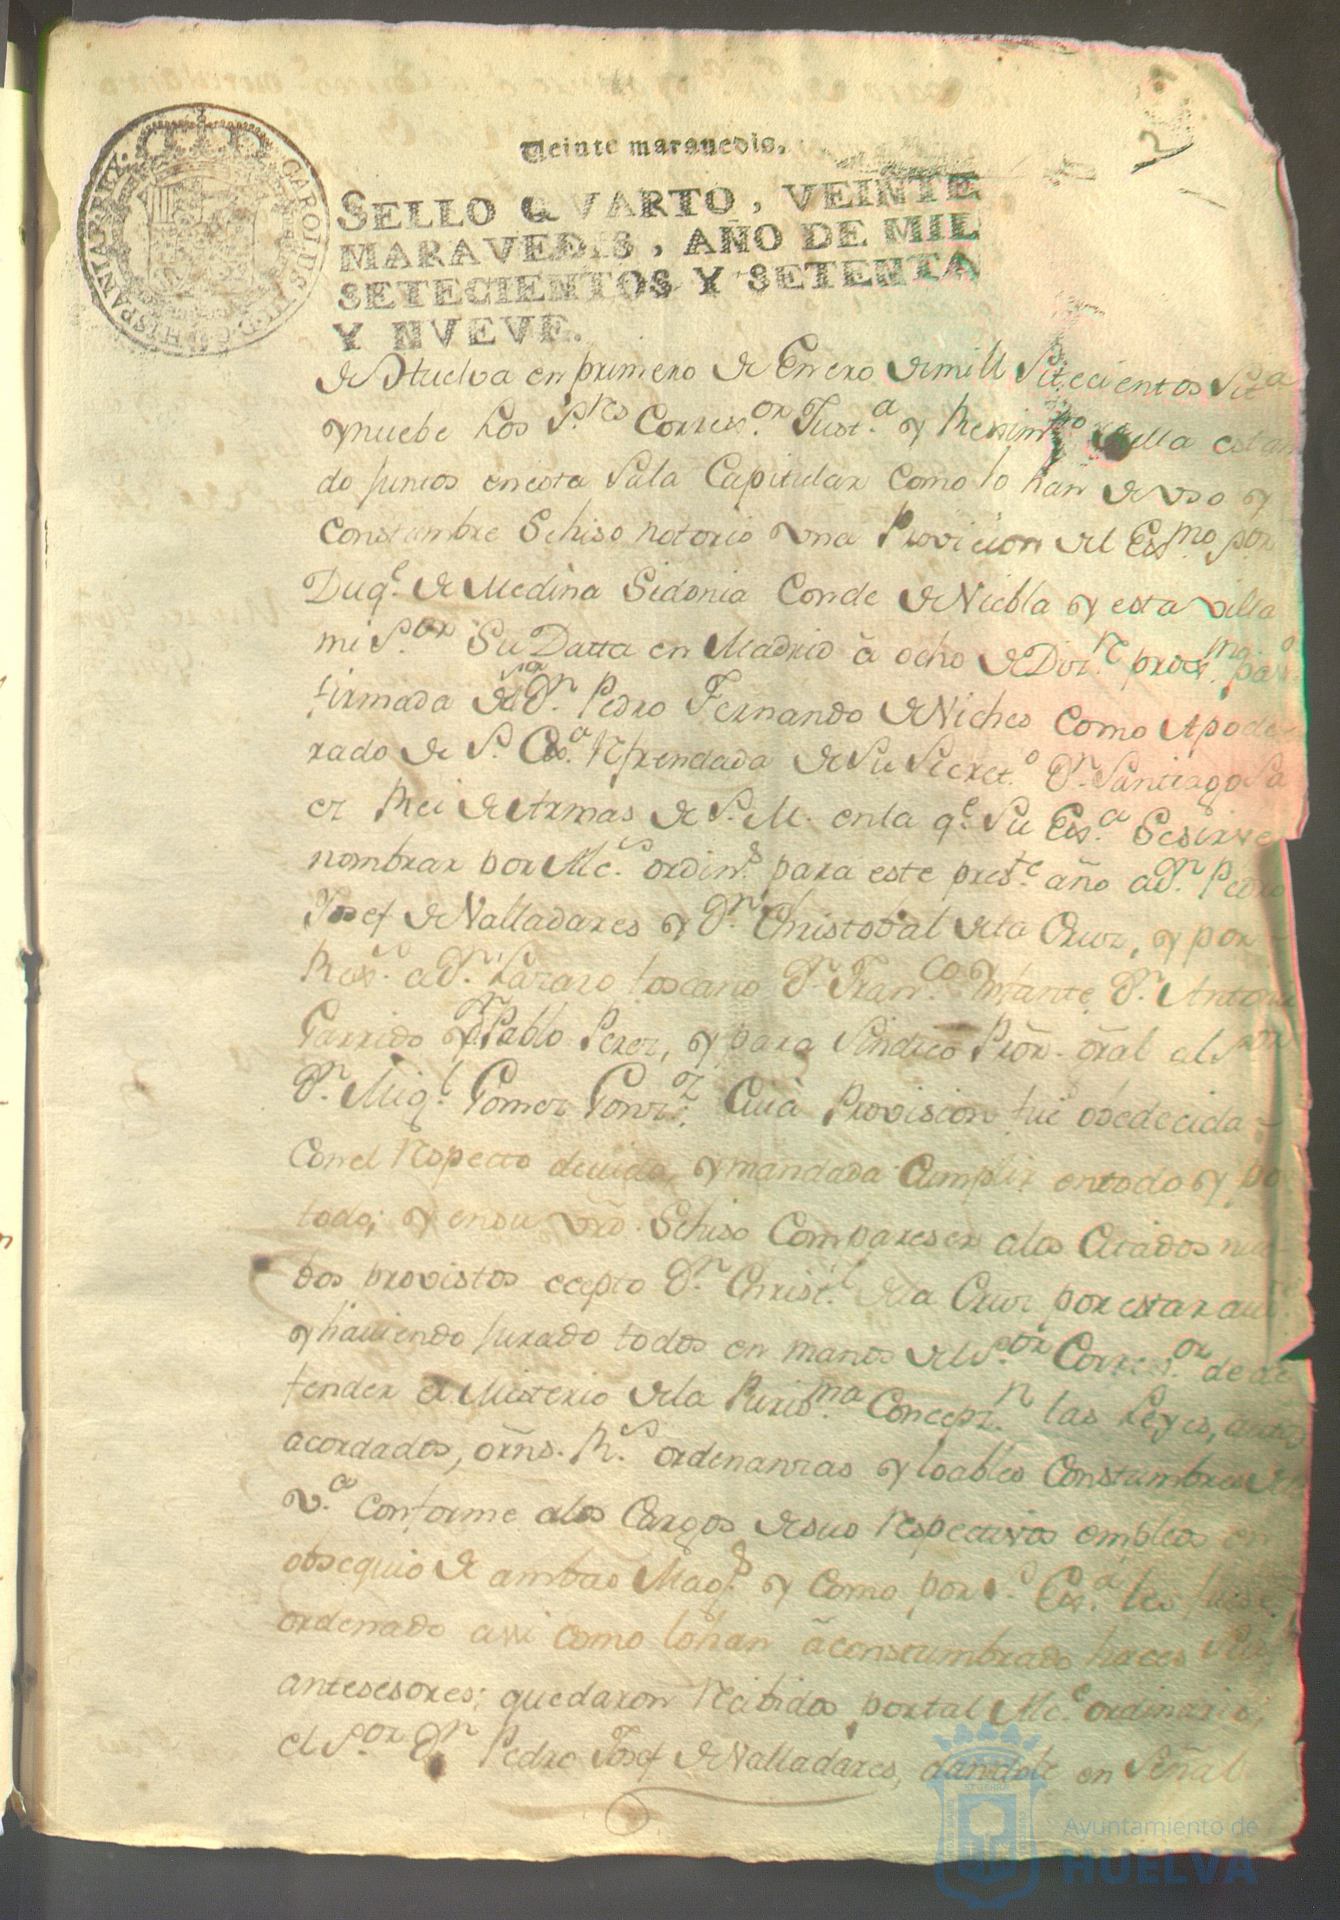 2
Veinte marauedis.
CAROLUS III. D. G. HISPANIAR. REX.
SELLO QVARTO, VEINTE
MARAVEDIS, AÑO DE MIL
SETECIENTOS Y SETENTA
Y NVEVE.
de Huelva en primero de Enero de mill Setecientos Seta
y nuebe Los S.res Corres.or Just.a y Rexim.to de ella estan
do juntos en esta Sala Capitular como lo han de uso y
Constumbre Se hiso notorio una Provicion del Exs.mo por
Duq.e de Medina Sidonia Conde de Niebla y esta villa
mi S.or Su Datta en Madrid à ocho de Diz.re prox.mo pas.o
firmada de D.n Pedro Fernando de Niches como Apode
rado de S. Ex.a Rfrendada de Su Secret.o D.n Santiago Sa
ez Rei de Armas de S. M. en la q.e Su Ex.a Se sirve
nombrar por Alc.s ordin.s para este pres.te año a D.n Pedro
Josef de Valladares y D.n Christobal de la Cruz, y por
Rex.s a D.n Lazaro toscano D.n Fran.co Ynfante D.n Antonio
Garrido y D.n Pablo Perez, y para Sindico Pror. gral al S.or
D.n Mig.l Gomez Gonz.z Cuia Provision fue obedecida
Con el Respecto devido, y mandada Cumplir en todo y po
todo; y en su vrd. Se hiso Compareser a los Citados nue
bos provistos ecepto D.n Christ.l de la Cruz por estar aus.e
y haviendo jurado todos en manos del S.or Corres.or de de
fender el Misterio de la Puris.ma Concepz.n las Leyes, autos
acordados, orns. R.s ordenanzas y loables Constumbres de
v.a conforme a los Cargos de sus Respectivos empleos en
obsequio de ambas Mag.s y como por S. Ex.a les fuese
ordenado assi como lo han aconstumbrado hacer Sus
antesesores; quedaron Recibidos por tal Alc.e ordinario,
el S.or D.n Pedro Josef de Valladares, dandole en Señal
Ayuntamiento de
HUELVA